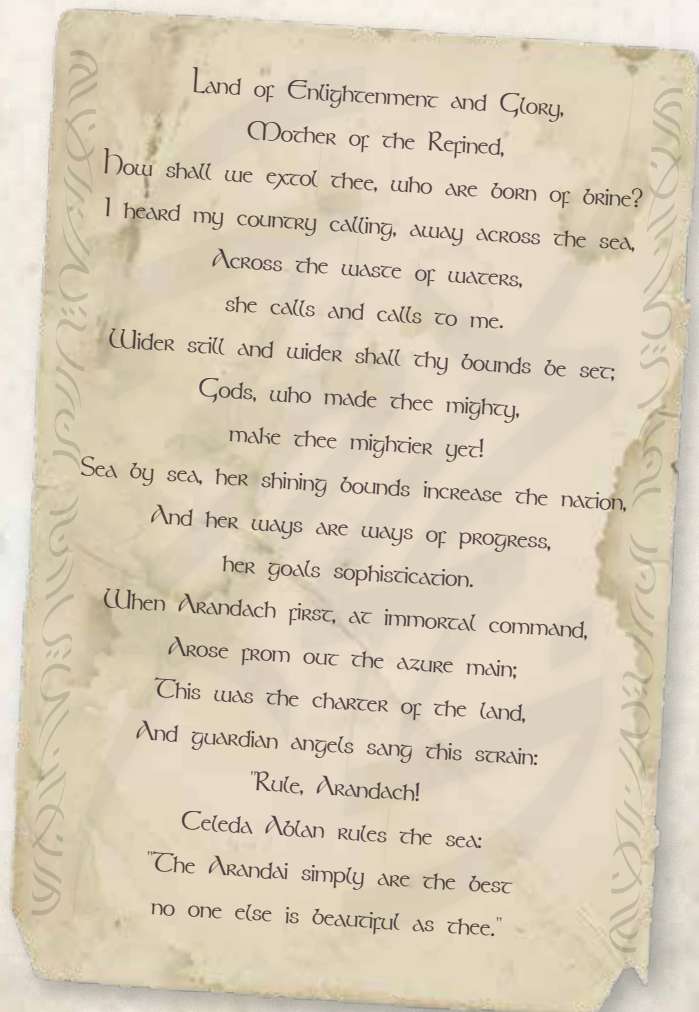 Land of Enlightenment and Glory,
Mother of the Refined,
How shall we extol thee, who are born of brine?
I heard my country calling, away across the sea,
Across the waste of waters,
she calls and calls to me.
Wider still and wider shall thy bounds be set;
Gods, who made thee mighty,
make thee mightier yet!
Sea by sea, her shining bounds increase the nation,
And her ways are ways of progress,
her goals sophistication.
When Arandach first, at immortal command,
Arose from out the azure main;
This was the charter of the land,
And guardian angels sang this strain:
"Rule, Arandach!
Celeda Ablan rules the sea:
"The Arandai simply are the best
no one else is beautiful as thee."